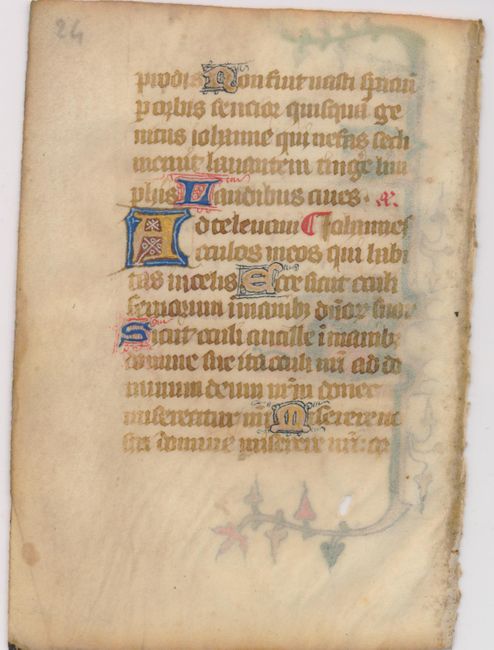 24
prodis Non fuit vasti spaciū
p orbis sencior quisquā ge
nitus iohanne qui nefas secli
meruit lauantem tinge lim
phis Laudibus ciues. a.
Ad te leuaui Iohannes
oculos meos qui habi
tas in celis Ecce sicut oculi
seruorum ī manibȝ dn̄or suor
Sicut oculi ancille ī manibȝ
domine sue ita oculi nr̄i ad do
minum deum nr̄m donec
misereatur nr̄i Miserere no
stri domine miserere nr̄i: q